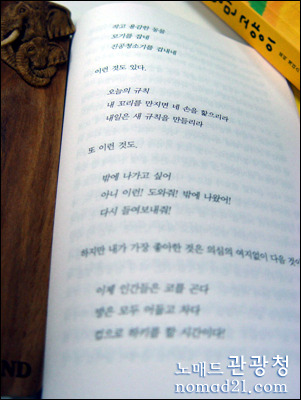 작고 용감한 동물
모기를 잡네
진공청소기를 겁내네
이런 것도 있다.
오늘의 규칙
내 꼬리를 만지면 네 손을 핥으리라
내일은 새 규칙을 만들리라
또 이런 것도.
밖에 나가고 싶어
아니 이런! 도와줘! 밖에 나왔어!
다시 들여보내줘!
하지만 내가 가장 좋아한 것은 의심의 여지없이 다음 것이
이제 인간들은 코를 곤다
방은 모두 어둡고 차다
컵으로 하키를 할 시간이다!
ND
노매드 관광청
nomad21.com